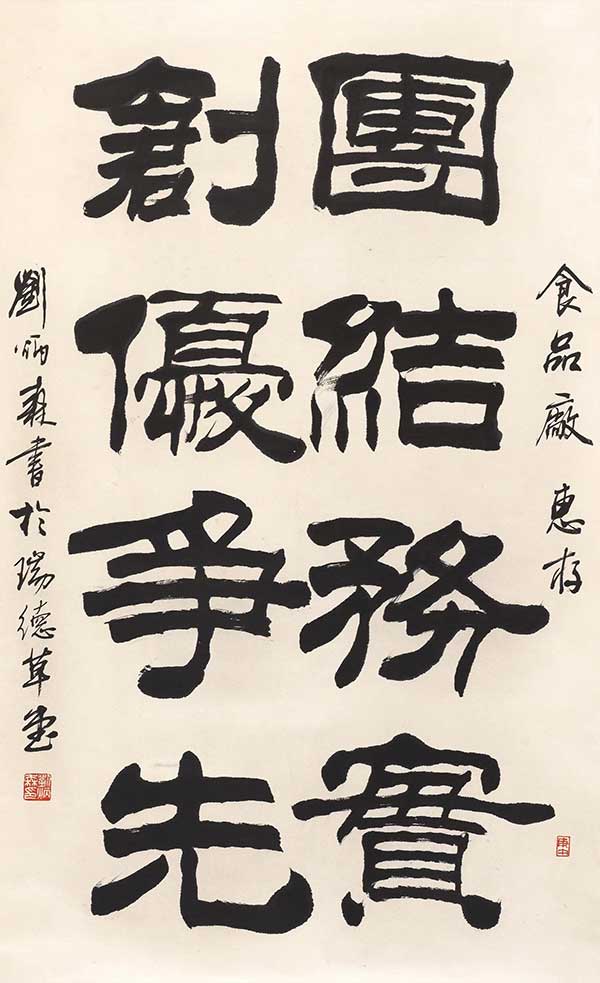 食品廠 惠存
團結務實
創優爭先
劉炳森書於瑞德草堂